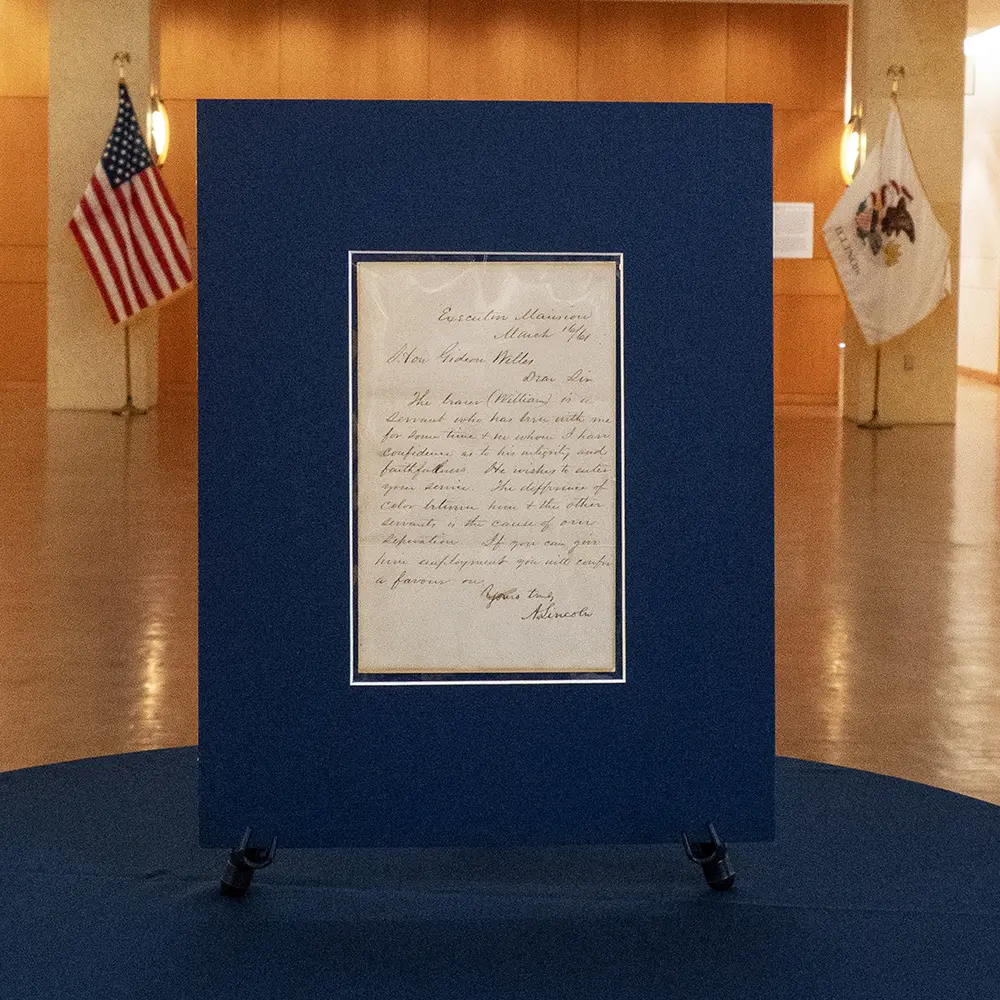 Executive Mansion
March 16/61.
Hon Gideon Welles
Dear Sir
The bearer (William) is a
servant who has been with me
for some time & in whom I have
confidence as to his integrity and
faithfulness. He wishes to enter
your service. The difference of
color between him & the other
servants is the cause of our
seperation. If you can give
him employment you will confer
a favour on
Yours truly
A. Lincoln
ILLINOIS